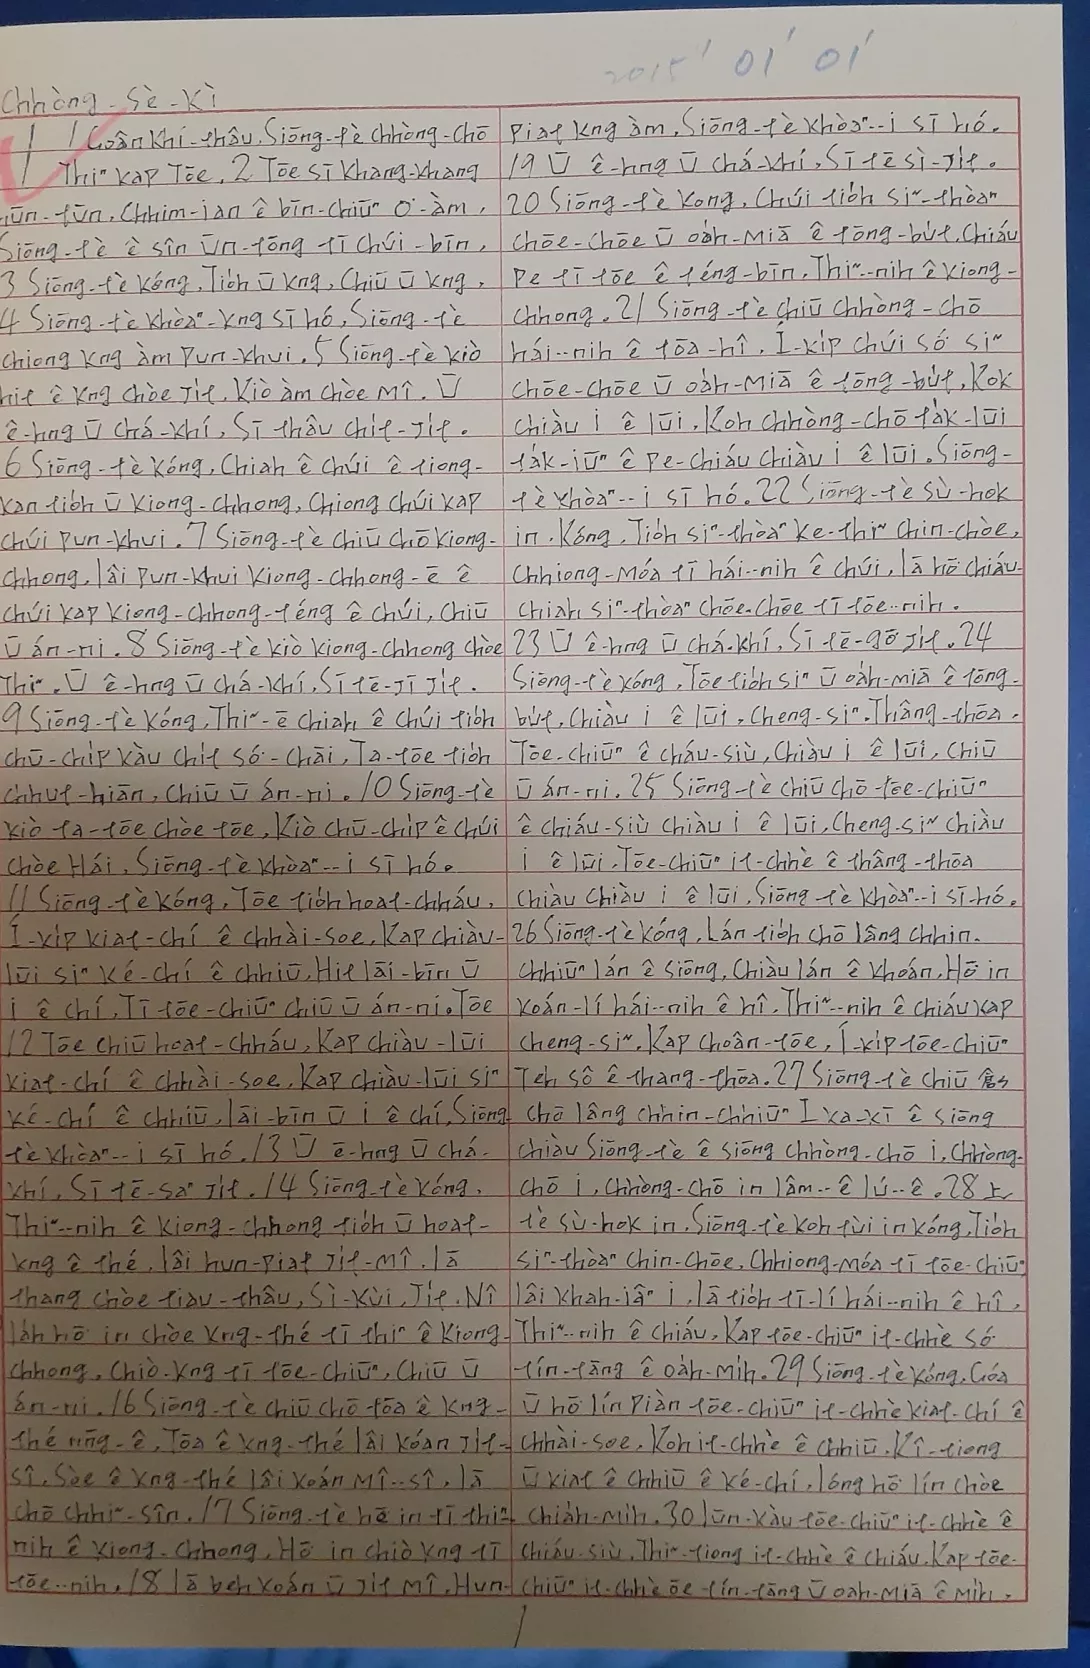 2015' 01' 01'
Chhòng-Sè-Kì
1 1 Goân khí-thâu, Siōng-tè chhòng-chō
Thiⁿ kap Tōe, 2 Tōe sī khang-khang
hūn-tūn, Chhim-ian ê bīn-chiūⁿ o͘-àm,
Siōng-tè ê sîn ūn-tōng tī chúi-bīn,
3 Siōng-tè kóng, Tio̍h ū kng, Chiū ū kng,
4 Siōng-tè khòaⁿ-kng sī hó, Siōng-tè
chiong kng àm pun-khui. 5 Siōng-tè kiò
hit ê kng chòe Ji̍t, Kiò àm chòe Mî. Ū
ê-hng ū chá-khí, Sī thâu chi̍t-Ji̍t.
6 Siōng-tè kóng, Chiah ê chúi ê tiong-
kan tio̍h ū kiong-chhong, Chiong chúi kap
chúi pun-khui. 7 Siōng-tè chiū chō kiong-
chhong, lâi pun-khui kiong-chhong-ē ê
chúi kap kiong-chhong-téng ê chúi, Chiū
ū án-ni. 8 Siōng-tè kiò kiong-chhong chòe
Thiⁿ. Ū ê-hng ū chá-khí, Sī tē-jī Ji̍t.
9 Siōng-tè kóng, Thiⁿ-ē chiah ê chúi tio̍h
chū-chi̍p kàu chi̍t só͘-chāi, Ta-tōe tio̍h
chhut-hiān, Chiū ū án-ni. 10 Siōng-tè
kiò ta-tōe chòe tōe, Kiò chū-chi̍p ê chúi
chòe Hái, Siōng-tè khòaⁿ--i sī hó.
11 Siōng-tè kóng, Tōe tio̍h hoat-chháu,
Í-ki̍p kiat-chí ê chhài-soe, Kap chiàu-
lūi siⁿ ké-chí ê chhiū, Hit lāi-bīn ū
i ê chí, Tī tōe-chiūⁿ chiū ū án-ni. Tōe
12 Tōe chiū hoat-chháu, Kap chiàu-lūi
kiat-chí ê chhài-soe, Kap chiàu-lūi siⁿ
ké-chí ê chhiū, lāi-bīn ū i ê chí, Siōng-
tè khòaⁿ--i sī hó. 13 Ū ē-hng ū chá-
khí, Sī tē-saⁿ Ji̍t. 14 Siōng-tè kóng,
Thiⁿ--nih ê kiong-chhong tio̍h ū hoat-
kng ê thé, lâi hun-piat Ji̍t-Mî, lā
thang chòe tiau-thâu, Sì-kùi, Ji̍t, Nî
lah hō͘ in chòe kng-thé tī thiⁿ ê kiong-
chhong, Chiò-kng tī tōe-chiūⁿ, Chiū ū
án-ni. 16 Siōng-tè chiū chō tōa ê kng-
thé nn̄g-ê, Tōa ê kng-thé lâi koán Ji̍t-
sî, Sòe ê kng-thé lâi koán Mî--sî, lā
chō chhiⁿ-sîn. 17 Siōng-tè hē in tī thiⁿ-
nih ê kiong-chhong, Hō͘ in chiò kng tī
tōe--nih, 18 lā beh koán ū Ji̍t Mî, Hun-
piat kng àm, Siōng-tè khòaⁿ--i sī hó.
19 Ū ê-hng ū chá-khí, Sī tē sì-Ji̍t.
20 Siōng-tè kong, Chúi tio̍h siⁿ-thòaⁿ
chōe-chōe ū oa̍h-miā ê tōng-bu̍t, Chiáu
pe tī tōe ê téng-bīn, Thiⁿ--nih ê kiong-
chhong. 21 Siōng-tè chiū chhòng-chō
hái--nih ê tōa-hî, Í-ki̍p chúi só͘ siⁿ
chōe-chōe ū oa̍h-miā ê tōng-bu̍t, Kok
chiàu i ê lūi, Koh chhòng-chō ta̍k-lūi
ta̍k-iūⁿ ê pe-chiáu chiàu i ê lūi. Siōng-
tè khòaⁿ--i sī hó. 22 Siōng-tè sù-hok
in, Kóng, Tio̍h siⁿ-thòaⁿ ke-thiⁿ chin-chōe,
Chhiong-móa tī hái--nih ê chúi, lā hō͘ chiáu-
chiah siⁿ-thòaⁿ chōe-chōe tī tōe--nih.
23 Ū ê-hng ū chá-khí, Sī tē-gō͘ Ji̍t. 24
Siōng-tè kóng, Tōe tio̍h siⁿ ū oa̍h-miā ê tōng-
bu̍t, Chiàu i ê lūi, Cheng-siⁿ, Thâng-thōa,
Tōe-chiūⁿ ê cháu-siù, Chiàu i ê lūi, Chiū
ū án-ni. 25 Siōng-tè chiū chō tōe-chiūⁿ
ê chiáu-siù chiàu i ê lūi, Cheng-siⁿ chiàu
i ê lūi, Tōe-chiūⁿ it-chhè ê thâng-thōa
chiàu Chiàu i ê lūi, Siōng-tè khòaⁿ--i sī hó.
26 Siōng-tè kóng, Lán tio̍h chō lâng chhin-
chhiūⁿ lán ê siōng, Chiàu lán ê khoán, Hō͘ in
koán-lí hái--nih ê hî, Thiⁿ--nih ê chiáu kap
cheng-siⁿ, Kap choân-tōe, Í-ki̍p tōe-chiūⁿ
Teh sô ê thang-thōa. 27 Siōng-tè chiū 創
chō lâng chhin-chhiūⁿ I ka-kī ê siōng
chiàu Siōng-tè ê siōng chhòng-chō i, Chhòng-
chō i, Chhòng-chō in lâm--ê lú--ê. 28 上
tè sù-hok in, Siōng-tè koh tùi in kóng, Tio̍h
siⁿ-thòaⁿ chin-chōe, Chhiong-móa tī tōe-chiūⁿ,
lâi khah-iâⁿ i, lā tio̍h tī-lí hái-nih ê hî,
Thiⁿ--nih ê chiáu, Kap tōe-chiūⁿ it-chhè só͘
tín-tāng ê oa̍h-mi̍h. 29 Siōng-tè kóng, Góa
ū hō͘ lín piàn tōe-chiūⁿ it-chhè kiat-chí ê
chhài-soe, Koh it-chhè ê chhiū, Kî-tiong
ū kiat ê chhiū ê ké-chí, lóng hō͘ lín chòe
chia̍h-mi̍h. 30 lūn-kàu tōe-chiūⁿ it-chhè ê
chiáu-siù, Thiⁿ-tiong it-chhè ê chiáu, Kap tōe-
chiūⁿ it-chhè ōe tín-tāng ū oah-miā ê mi̍h,
1